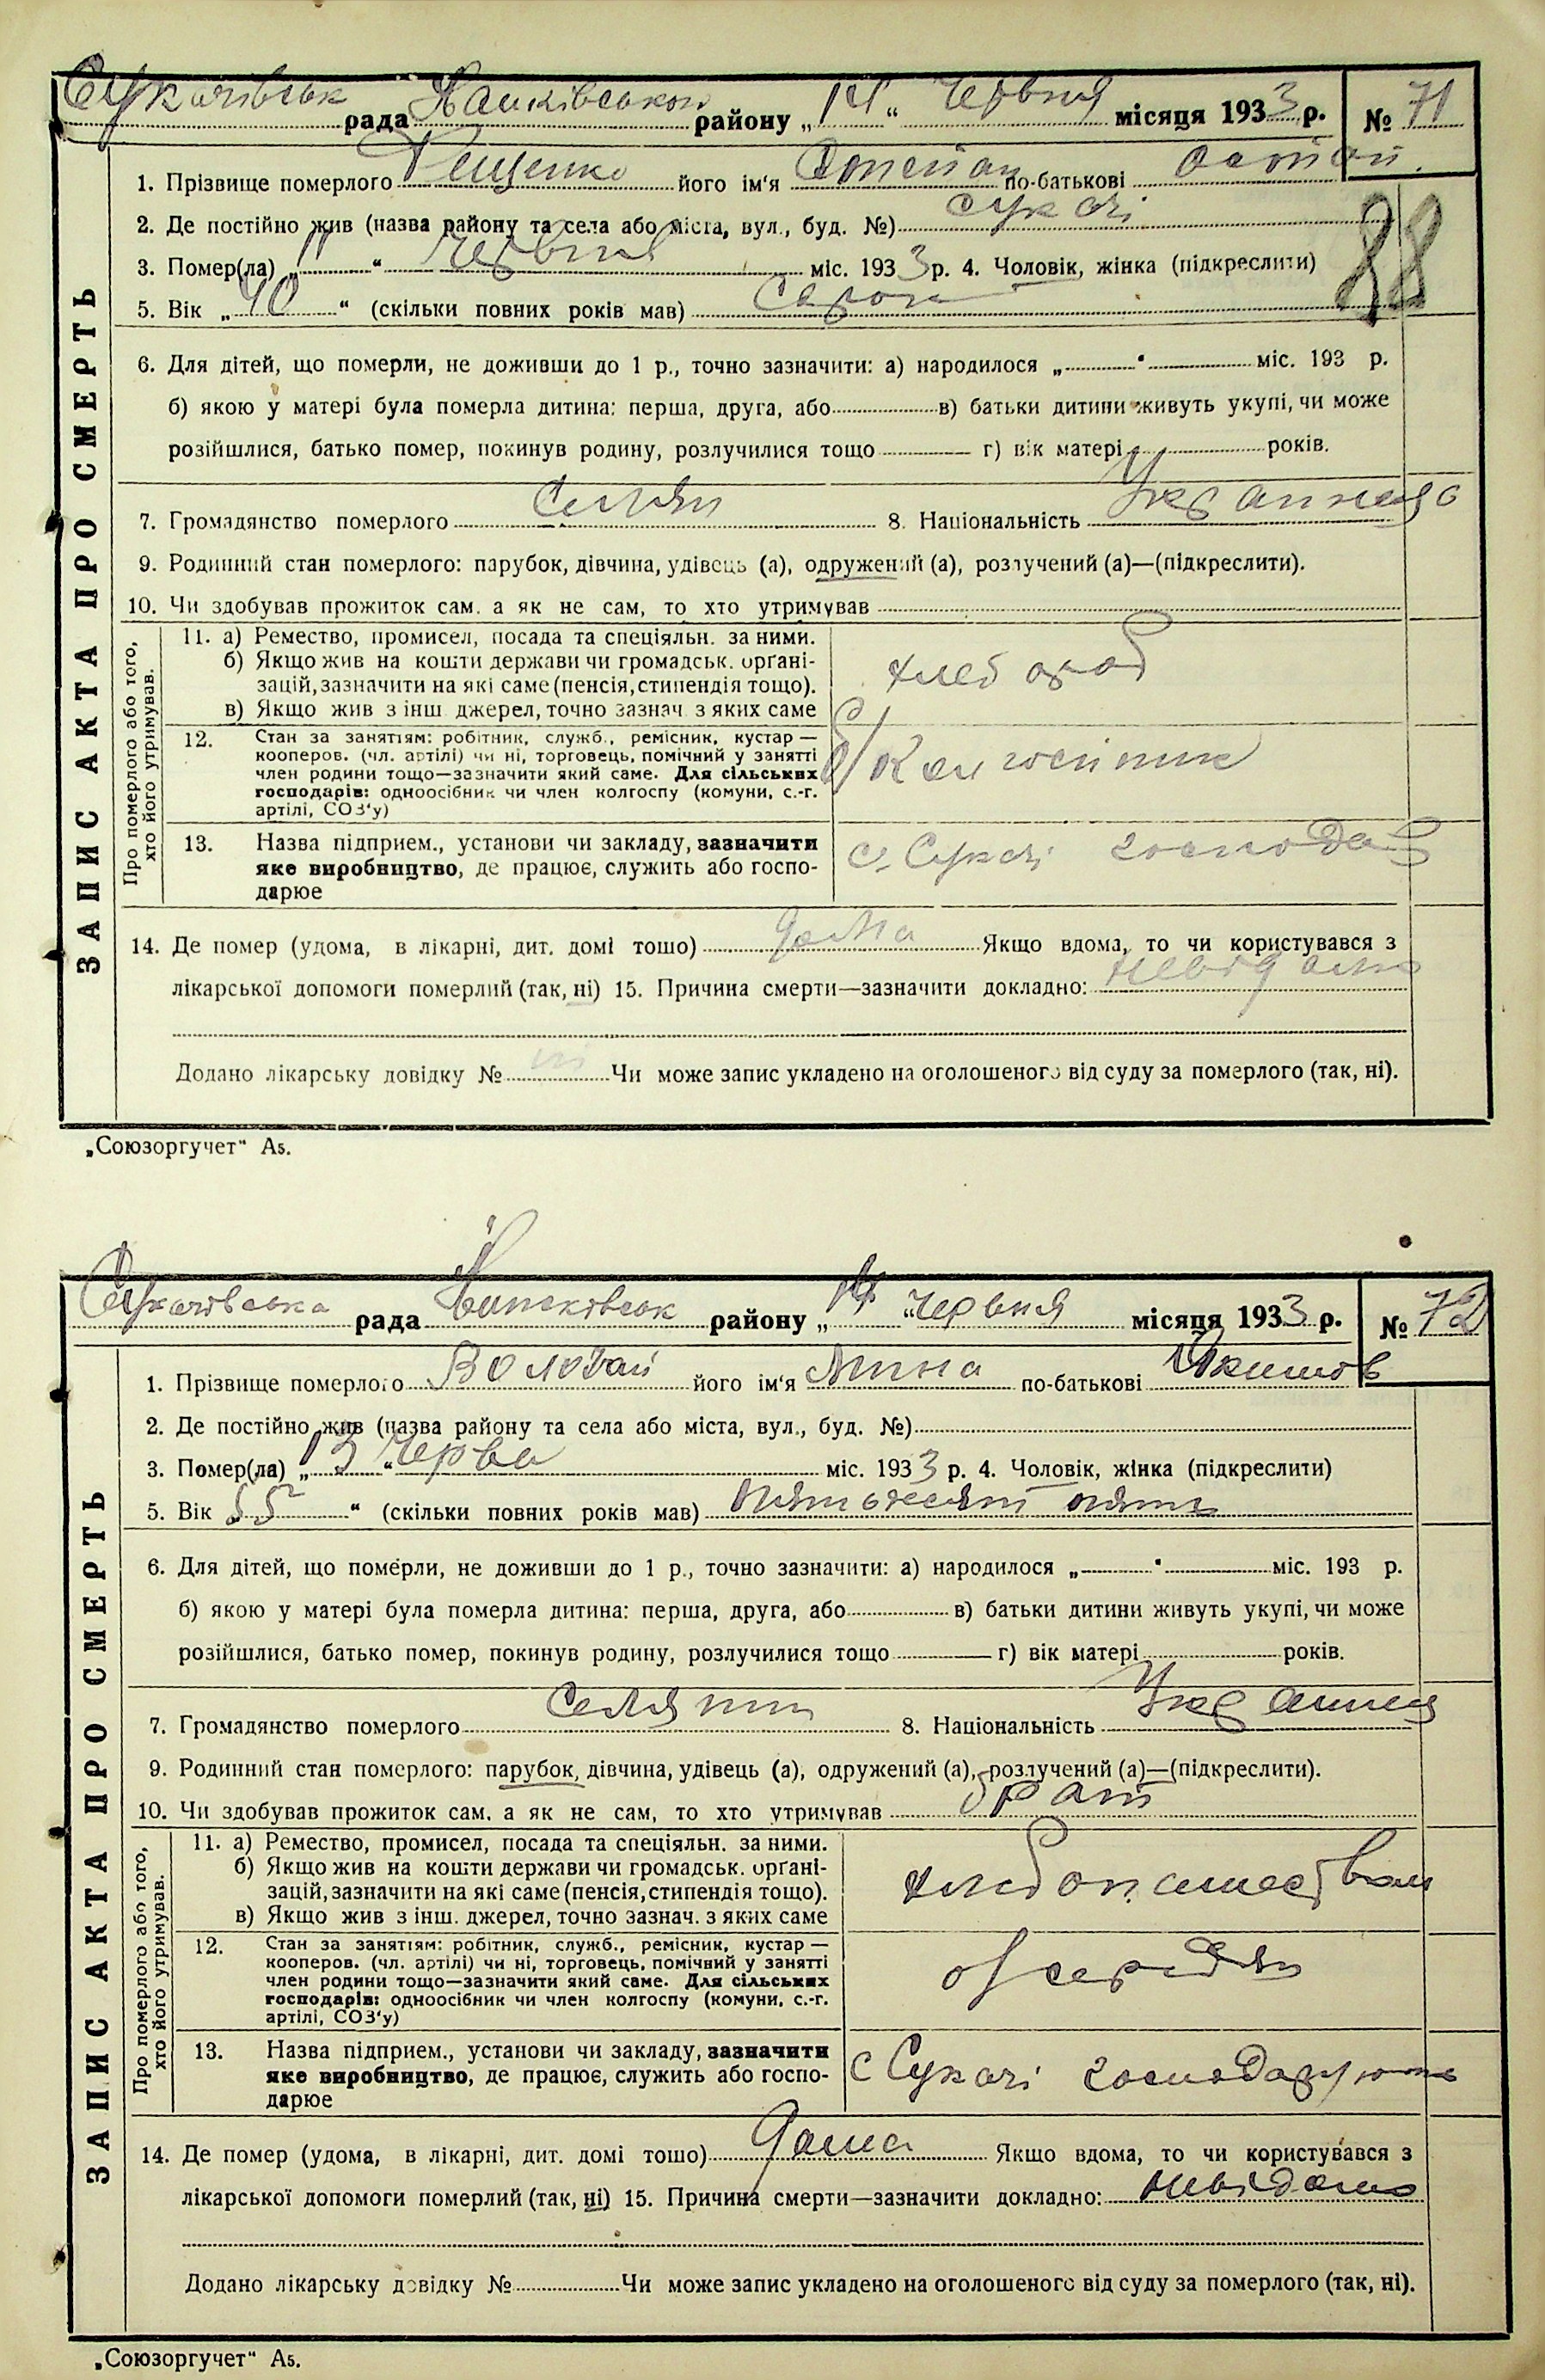 Сукачівськ рада Іванківського району „14“ Червня місяця 1933 р. № 71
1. Прізвище померлого Тещенко його ім'я Степан по-батькові Остап.
2. Де постійно жив (назва району та села або міста, вул., буд. №) Сукачі
88
3. Помер(ла) „11“ червня міс. 1933 р. 4. Чоловік, жінка (підкреслити)
5. Вік „40“ (скільки повних років мав) Сорок
6. Для дітей, що померли, не доживши до 1 р., точно зазначити: а) народилося „ “ міс. 193 р.
б) якою у матері була померла дитина: перша, друга, або в) батьки дитини живуть укупі, чи може
розійшлися, батько помер, покинув родину, розлучилися тощо г) вік матері років.
7. Громадянство померлого Селян 8. Національність Українец
9. Родинний стан померлого: парубок, дівчина, удівець (а), одружений (а), розлучений (а)—(підкреслити).
10. Чи здобував прожиток сам. а як не сам, то хто утримував
ЗАПИС АКТА ПРО СМЕРТЬ
Про померлого або того, хто його утримував.
11. а) Ремество, промисел, посада та спеціяльн. за ними.
б) Якщо жив на кошти держави чи громадськ. органі-
зацій, зазначити на які саме (пенсія, стипендія тощо).
в) Якщо жив з інш джерел, точно зазнач. з яких саме
хлебороб
12. Стан за заняттям: робітник, служб., ремісник, кустар —
кооперов. (чл. артілі) чи ні, торговець, помічний у занятті
член родини тощо—зазначити який саме. Для сільських
господарів: одноосібник чи член колгоспу (комуни, с.-г.
артілі, СОЗ'у)
б/ Колгоспник
13. Назва підприєм., установи чи закладу, зазначити
яке виробництво, де працює, служить або госпо-
дарює
с. Сукачі господар
14. Де помер (удома, в лікарні, дит. домі тощо) дома Якщо вдома, то чи користувався з
лікарської допомоги померлий (так, ні) 15. Причина смерти—зазначити докладно: невідомо
Додано лікарську довідку № ні Чи може запис укладено на оголошеного від суду за померлого (так, ні).
„Союзоргучет“ А5.
Сукачівська рада Іванківськ району „14“ червня місяця 1933 р. № 72
1. Прізвище померлого Воловай його ім'я Мина по-батькові Якимов
2. Де постійно жив (назва району та села або міста, вул., буд. №)
3. Помер(ла) „13“ Черва міс. 1933 р. 4. Чоловік, жінка (підкреслити)
5. Вік 55 “ (скільки повних років мав) пятьдесят пять
6. Для дітей, що померли, не доживши до 1 р., точно зазначити: а) народилося „ “ міс. 193 р.
б) якою у матері була померла дитина: перша, друга, або в) батьки дитини живуть укупі, чи може
розійшлися, батько помер, покинув родину, розлучилися тощо г) вік матері років.
7. Громадянство померлого Селянин 8. Національність Українец
9. Родинний стан померлого: парубок, дівчина, удівець (а), одружений (а), розлучений (а)—(підкреслити).
10. Чи здобував прожиток сам. а як не сам, то хто утримував брат
ЗАПИС АКТА ПРО СМЕРТЬ
Про померлого або того, хто його утримував.
11. а) Ремество, промисел, посада та спеціяльн. за ними.
б) Якщо жив на кошти держави чи громадськ. органі-
зацій, зазначити на які саме (пенсія, стипендія тощо).
в) Якщо жив з інш. джерел, точно зазнач. з яких саме
хлебопашеством
12. Стан за заняттям: робітник, служб., ремісник, кустар —
кооперов. (чл. артілі) чи ні, торговець, помічний у занятті
член родини тощо—зазначити який саме. Для сільських
господарів: одноосібник чи член колгоспу (комуни, с.-г.
артілі, СОЗ'у)
13. Назва підприєм., установи чи закладу, зазначити
яке виробництво, де працює, служить або госпо-
дарює
с Сукачі господарують
14. Де помер (удома, в лікарні, дит. домі тощо) Дома Якщо вдома, то чи користувався з
лікарської допомоги померлий (так, ні) 15. Причина смерти—зазначити докладно: невідомо
Додано лікарську довідку № Чи може запис укладено на оголошеного від суду за померлого (так, ні).
„Союзоргучет“ А5.